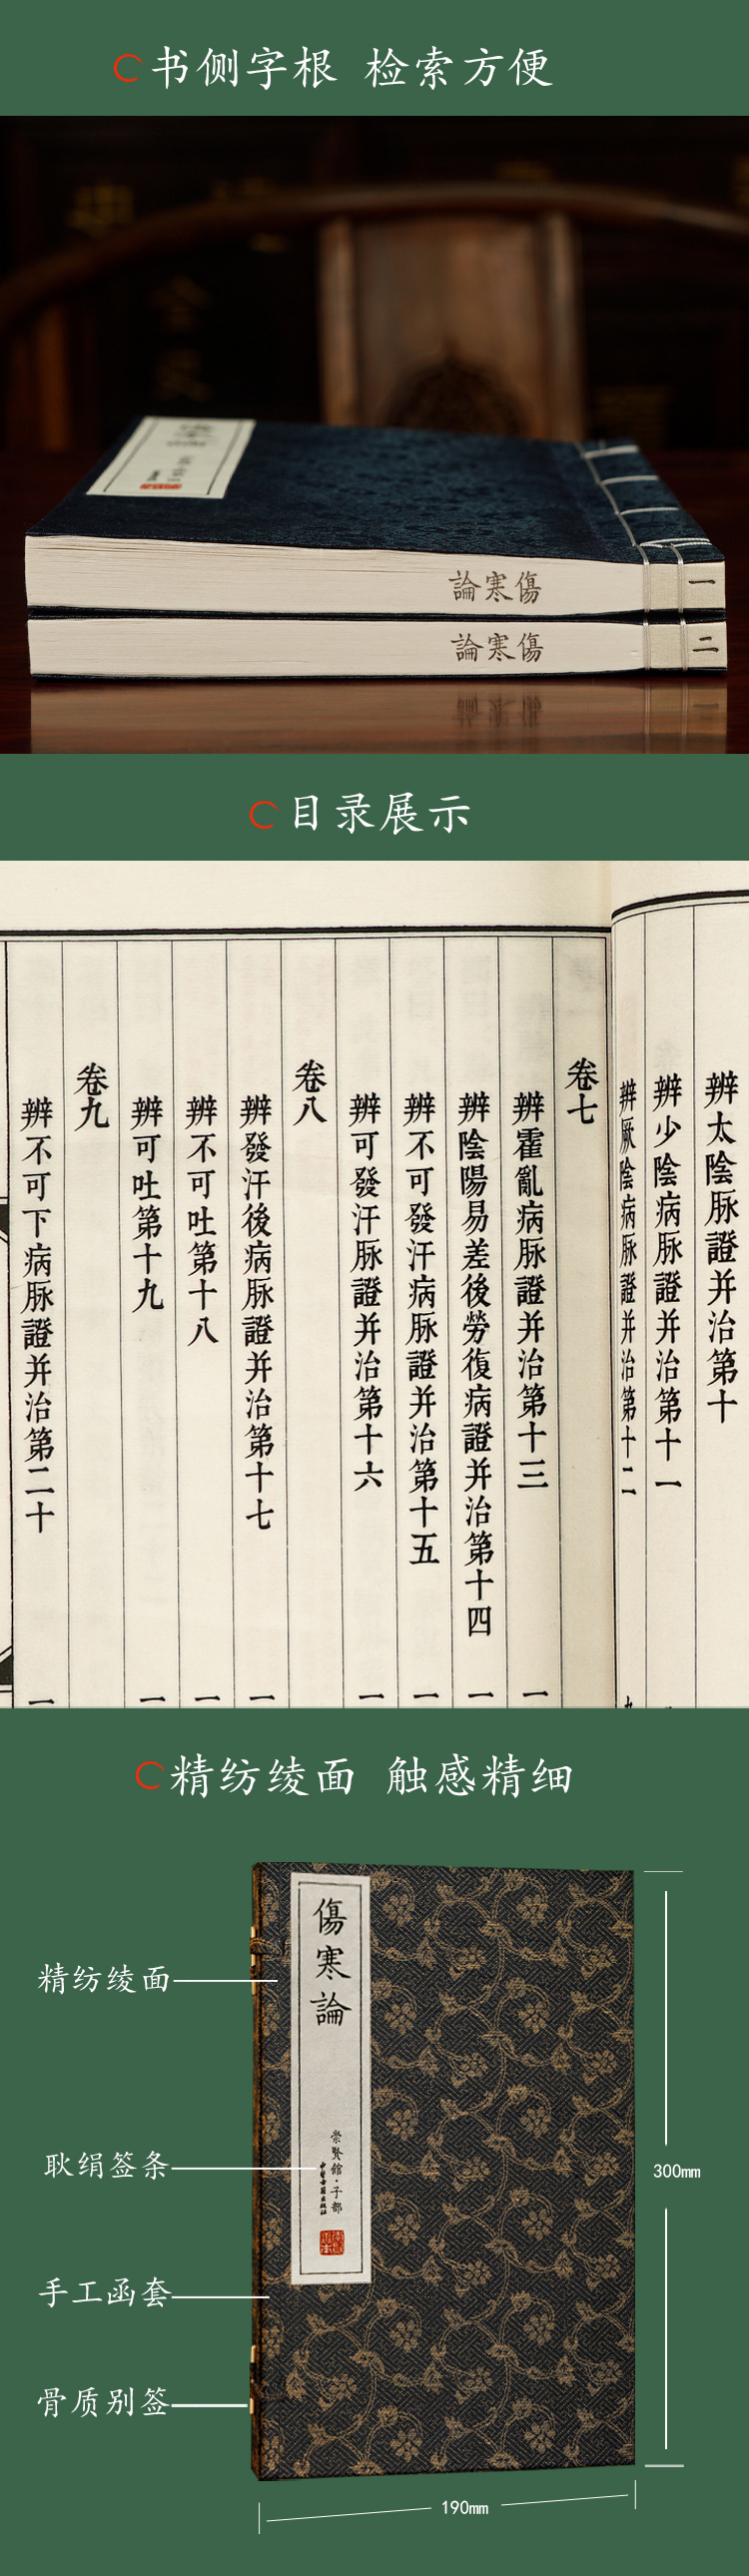 书侧字根 检索方便
論寒傷
一
論寒傷
二
目录展示
辨太陰脉證并治第十
辨少陰病脉證并治第十一
辨厥陰病脉證并治第十二
卷七
辨霍亂病脉證并治第十三
辨陰陽易差後勞復病證并治第十四
辨不可發汗病脉證并治第十五
辨可發汗脉證并治第十六
卷八
辨發汗後病脉證并治第十七
辨不可吐第十八
辨可吐第十九
卷九
辨不可下病脉證并治第二十
精纺绫面 触感精细
傷寒論
崇賢館·子部
精纺绫面
耿绢签条
手工函套
骨质别签
300mm
190mm